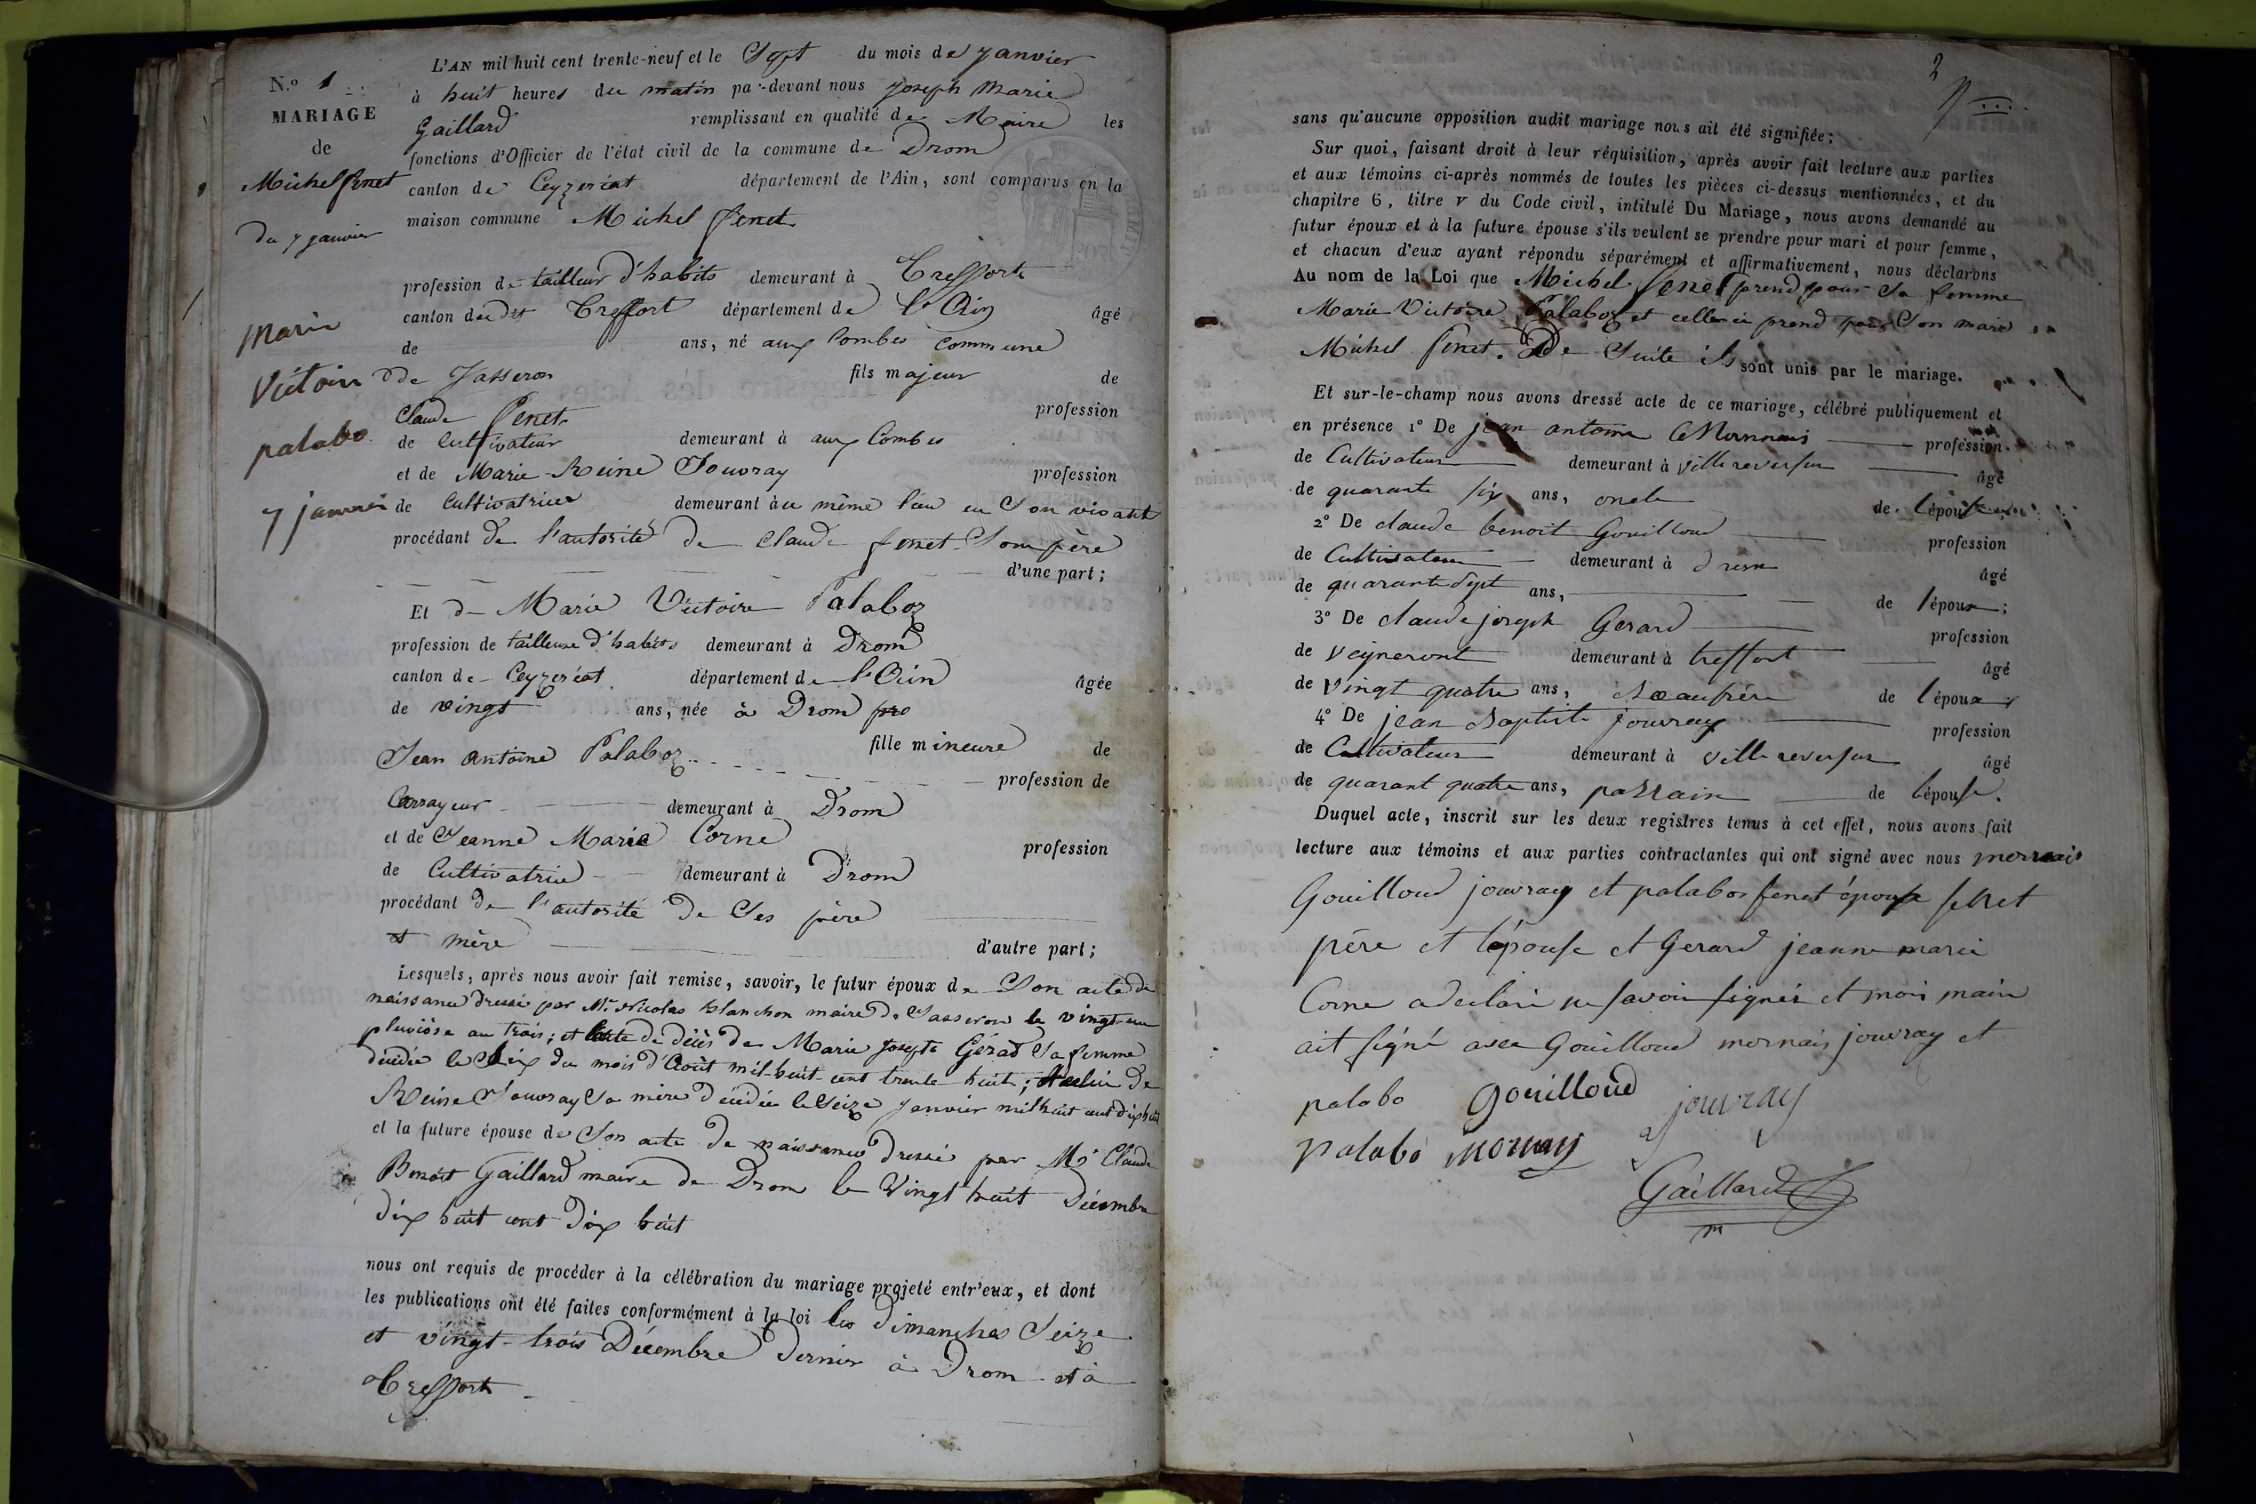 N.° 1
MARIAGE
de
Michel fenet
Du 7 janvier
Marie
Victoire
palabo
7 janvier
L'AN mil huit cent trente-neuf et le Sept du mois de janvier
à huit heures du matin par-devant nous joseph Marie
Gaillard remplissant en qualité de Maire les
fonctions d'Officier de l'état civil de la commune de Drom
canton de Ceyzeriat département de l'Ain, sont comparus en la
maison commune Michel fenet
profession de tailleur d'habits demeurant à Treffort
canton du dit Treffort département de l'Ain âgé
de ans, né aux Combes commune
de Jasseron fils majeur de
Claude fenet profession
de Cultivateur demeurant à aux Combes
et de Marie Reine Jouvray profession
de Cultivatrice demeurant au même lieu en son vivant
procédant de l'autorité de Claude fenet Son père
d'une part;
Et de Marie Victoire Palaboz
profession de tailleuse d'habits demeurant à Drom
canton de Ceyzeriat département de l'Ain âgée
de vingt ans, née à Drom
fille mineure de
Jean Antoine Palaboz profession de
Carrayeur demeurant à Drom
et de Jeanne Marie Corne profession
de Cultivatrice demeurant à Drom
procédant de l'autorité de Ses père
et mère d'autre part;
Lesquels, après nous avoir fait remise, savoir, le futur époux de Son acte de
naissance dressé par Mr Nicolas Blanchon maire de Jasseron le vingt un
pluviôse an trois; et l'acte de décès de Marie Josephe Gérad Sa femme
décédée le dix du mois d'Août mil-huit-cent trente huit; celui de
Reine Jouvray Sa mère décédée le Seize janvier mil huit cent dix huit
et la future épouse de Son acte de naissance dressé par Mr Claude
Benoît Gaillard maire de Drom le Vingt huit Décembre
dix huit cent dix huit
nous ont requis de procéder à la célébration du mariage projeté entr'eux, et dont
les publications ont été faites conformément à la loi les dimanches Seize
et vingt-trois Décembre dernier à Drom et à
Treffort
2
sans qu'aucune opposition audit mariage nous ait été signifiée;
Sur quoi, faisant droit à leur réquisition, après avoir fait lecture aux parties
et aux témoins ci-après nommés de toutes les pièces ci-dessus mentionnées, et du
chapitre 6, titre v du Code civil, intitulé Du Mariage, nous avons demandé au
futur époux et à la future épouse s'ils veulent se prendre pour mari et pour femme,
et chacun d'eux ayant répondu séparément et affirmativement, nous déclarons
Au nom de la Loi que Michel fenet prend pour Sa femme
Marie Victoire Palaboz et celle-ci prend pour Son mari
Michel fenet. De Suite ils sont unis par le mariage.
Et sur-le-champ nous avons dressé acte de ce mariage, célébré publiquement et
en présence 1° De jean antoine Mornnais profession
de Cultivateur demeurant à villereversur âgé
de quarante six ans, oncle de l'épouse
2° De claude benoit Gouilloud profession
de Cultivateur demeurant à drom âgé
de quarante sept ans, de l'époux;
3° De claude joseph Gerard profession
de veyneront demeurant à treffort âgé
de vingt quatre ans, Beaufrére de l'époux;
4° De jean Baptiste jouvray profession
de Cultivateur demeurant à villereversur âgé
de quarant quatre ans, parrain de l'épouse.
Duquel acte, inscrit sur les deux registres tenus à cet effet, nous avons fait
lecture aux témoins et aux parties contractantes qui ont signé avec nous mornais
Gouilloud jouvray et palabos fenet époux fenet
père et l'épouse et Gerard jeanne marie
Corne a declaré ne savoir signér et moi maire
ait signé avec Gouilloud mornais jouvray et
palabo Gouilloud jouvray
Palabo mornay
Gaillard
m